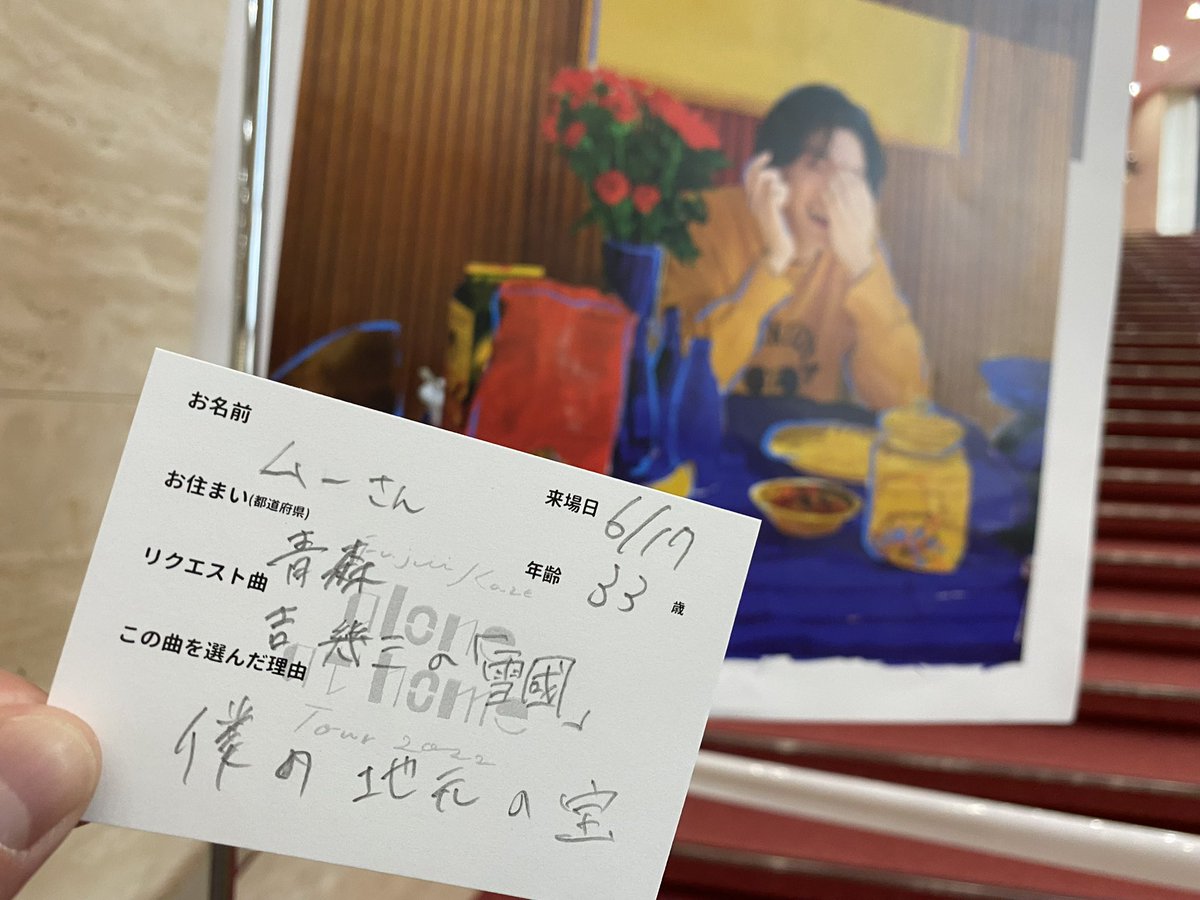 お名前
ムーさん
来場日 6/17
お住まい(都道府県)
青森
年齢 33 歳
リクエスト曲
吉幾三の「雪國」
この曲を選んだ理由
僕の地元の宝
Fujii Kaze
alone
at home
Tour 2022